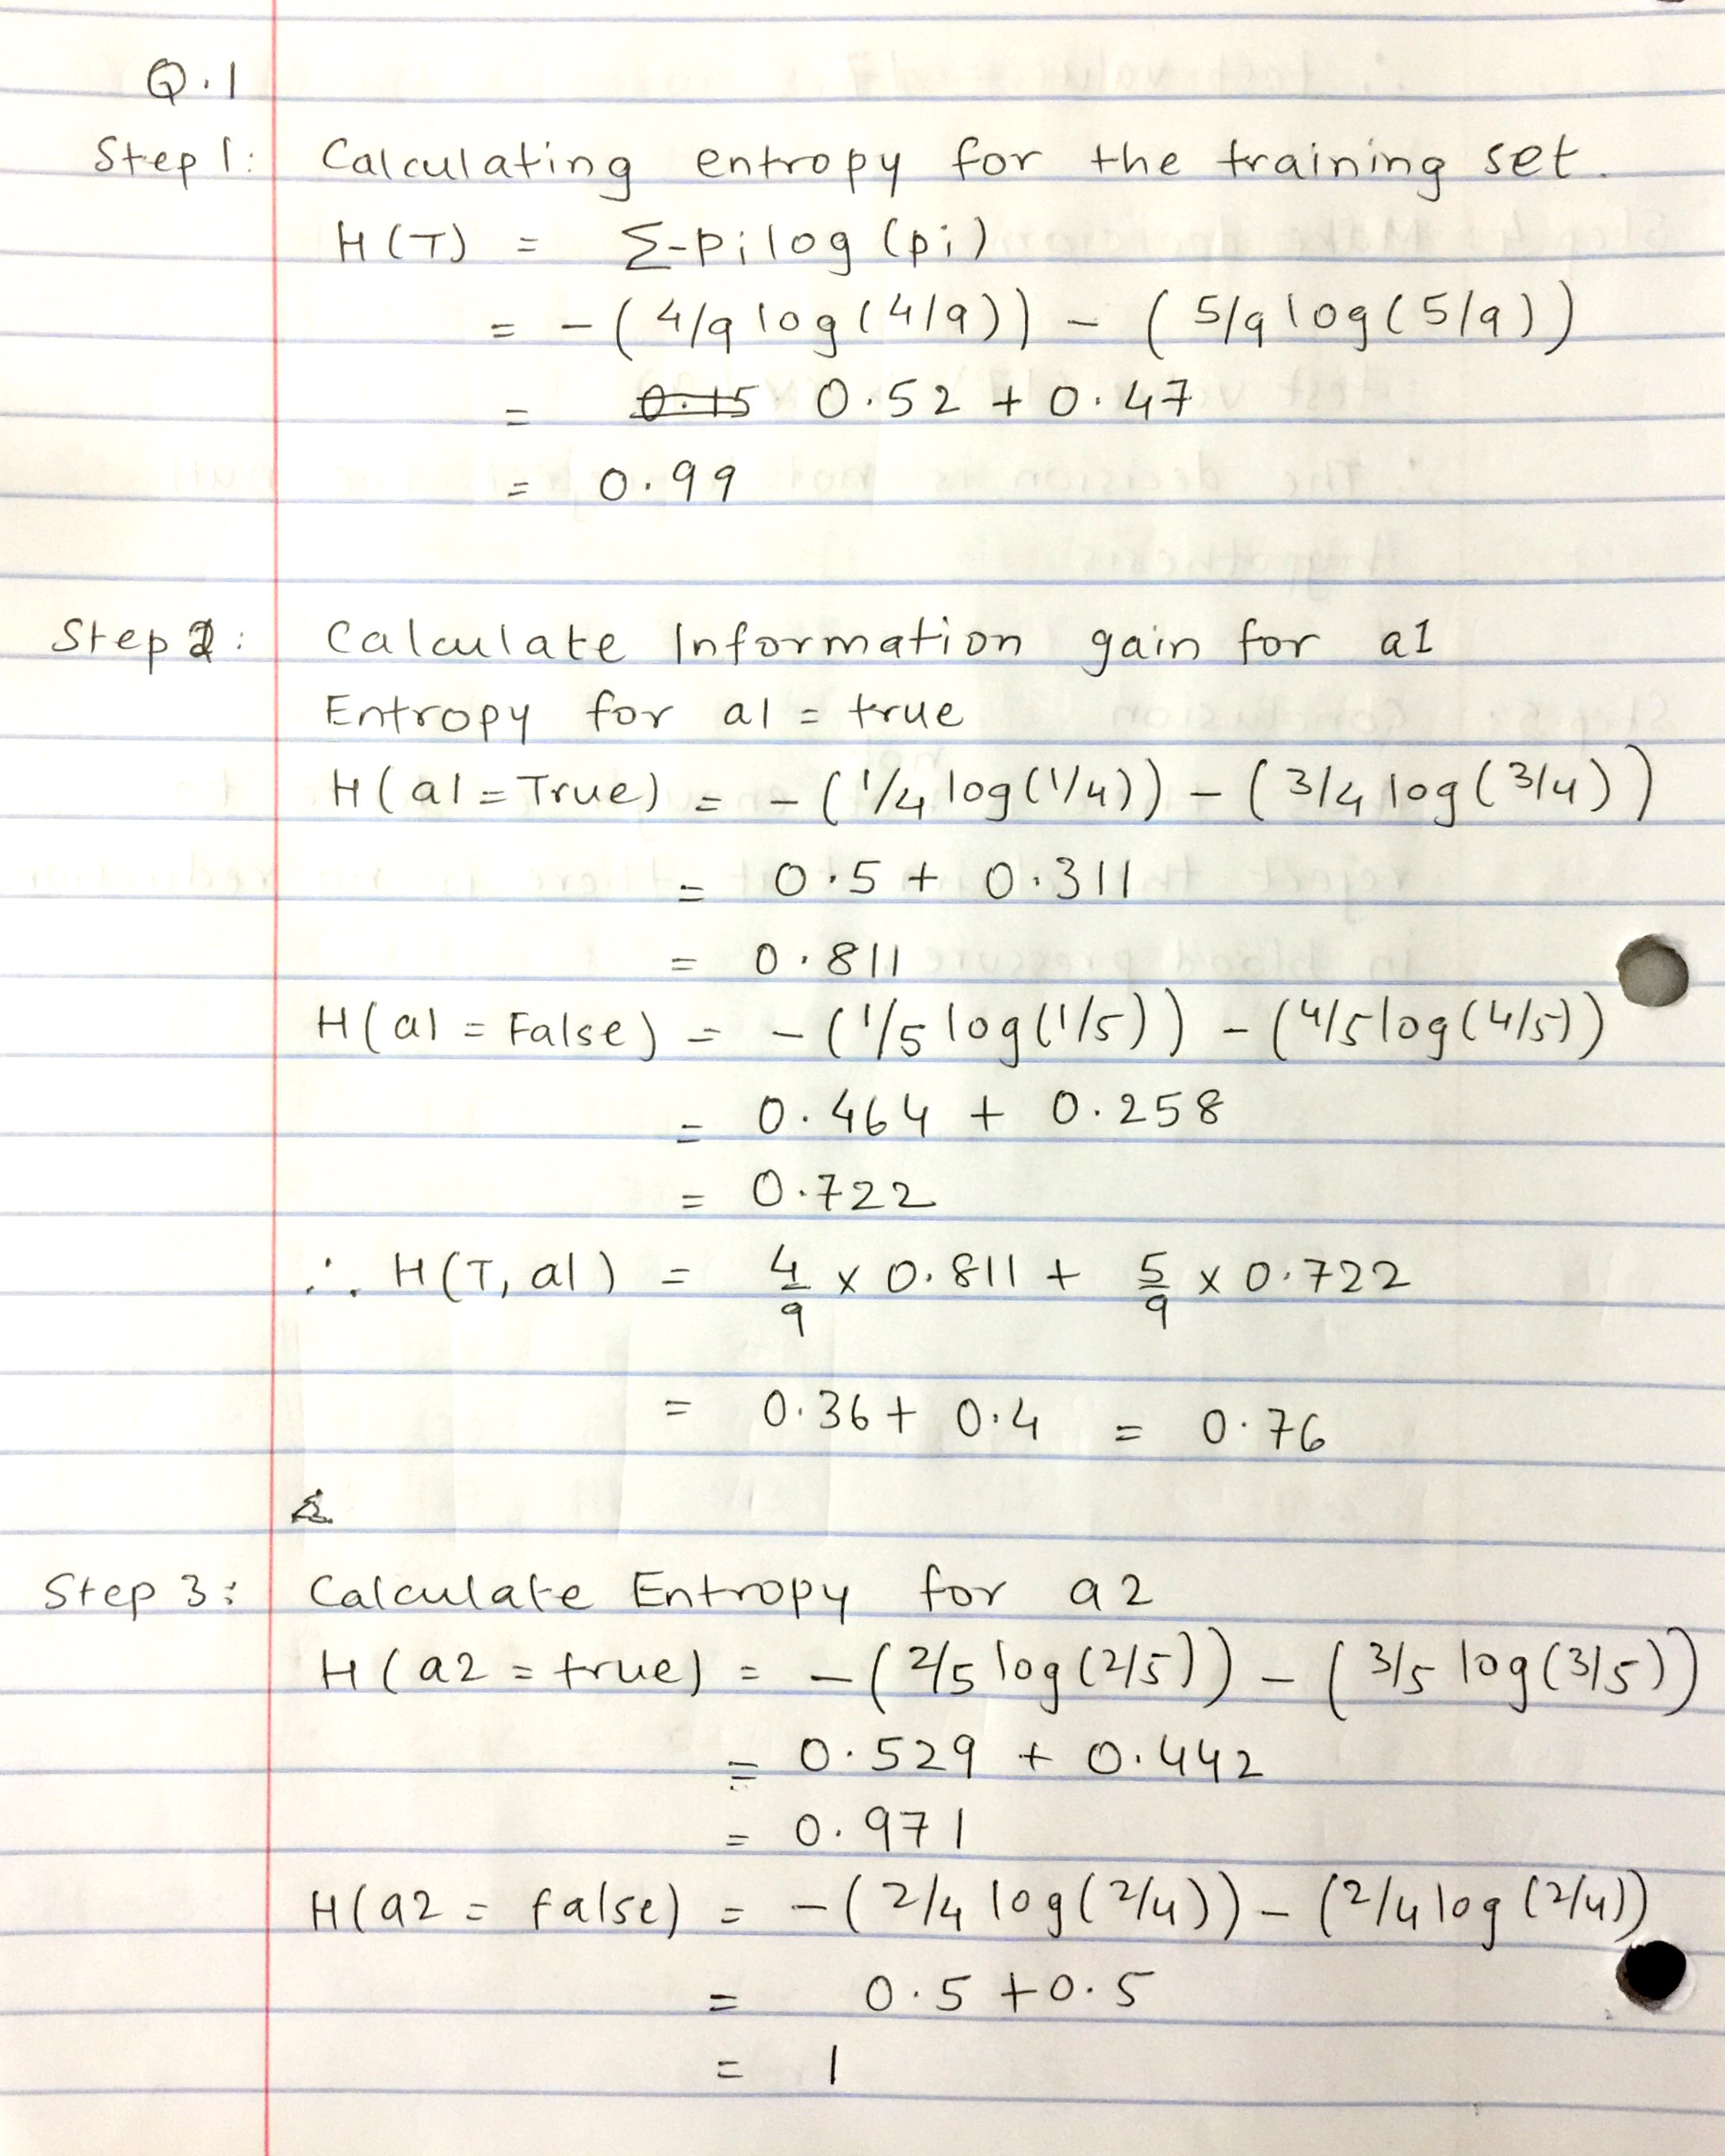 Q.1
Step 1: Calculating entropy for the training set.
H(T) = Σ-pi log (pi)
= - (4/9 log (4/9)) - (5/9 log (5/9))
= 0.52 + 0.47
= 0.99
Step 2: Calculate Information gain for a1
Entropy for a1 = true
H(a1 = True) = - (1/4 log (1/4)) - (3/4 log (3/4))
= 0.5 + 0.311
= 0.811
H(a1 = False) = - (1/5 log (1/5)) - (4/5 log (4/5))
= 0.464 + 0.258
= 0.722
∴ H(T, a1) = 4/9 x 0.811 + 5/9 x 0.722
= 0.36 + 0.4 = 0.76
Step 3: Calculate Entropy for a2
H(a2 = true) = - (2/5 log (2/5)) - (3/5 log (3/5))
= 0.529 + 0.442
= 0.971
H(a2 = false) = - (2/4 log (2/4)) - (2/4 log (2/4))
= 0.5 + 0.5
= 1